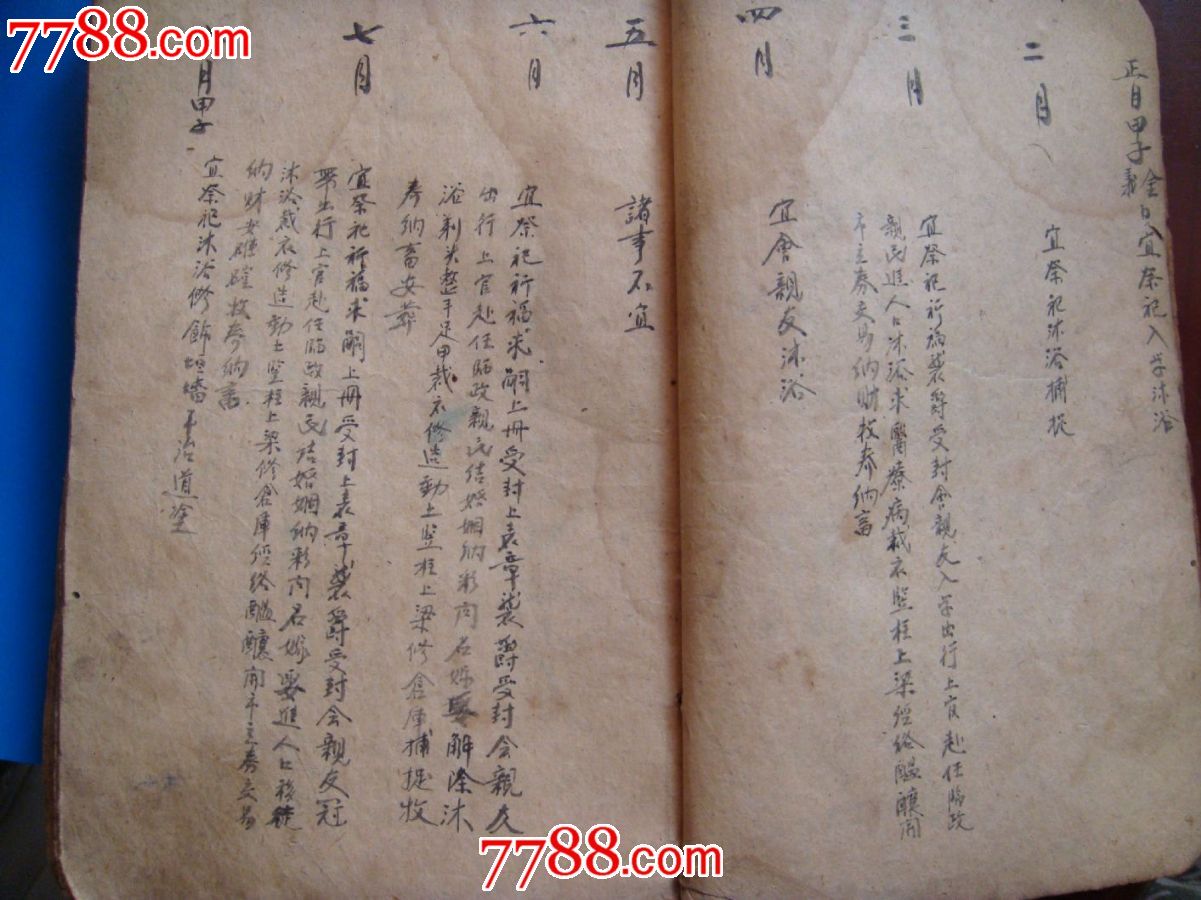 7788.com
7788.com
正月甲子 金義日 宜祭祀入学沐浴
二月 宜祭祀沐浴捕捉
三月 宜祭祀祈福袭爵受封会親友入学出行上官赴任临政
親民進人口沐浴求醫療病裁衣竪柱上梁经络醖釀開
市立券交易纳财牧养纳畜
四月 宜會親友沐浴
五月 諸事不宜
六月 宜祭祀祈福求嗣上册受封上表章袭爵受封会親友
出行上官赴任临政親民结婚姻纳彩问名嫁娶解除沐
浴剃头整手足甲裁衣修造動土竪柱上梁修倉庫捕捉牧
养纳畜安葬
七月 宜祭祀祈福求嗣上册受封上表章袭爵受封会親友冠
带出行上官赴任临政親民结婚姻纳彩问名嫁娶進人口移徒
沐浴裁衣修造動土竪柱上梁修倉庫经络醖釀開市立券交易
纳财安碓磑牧养纳畜
月甲子 宜祭祀沐浴修飾垣墻平治道塗
7788.com